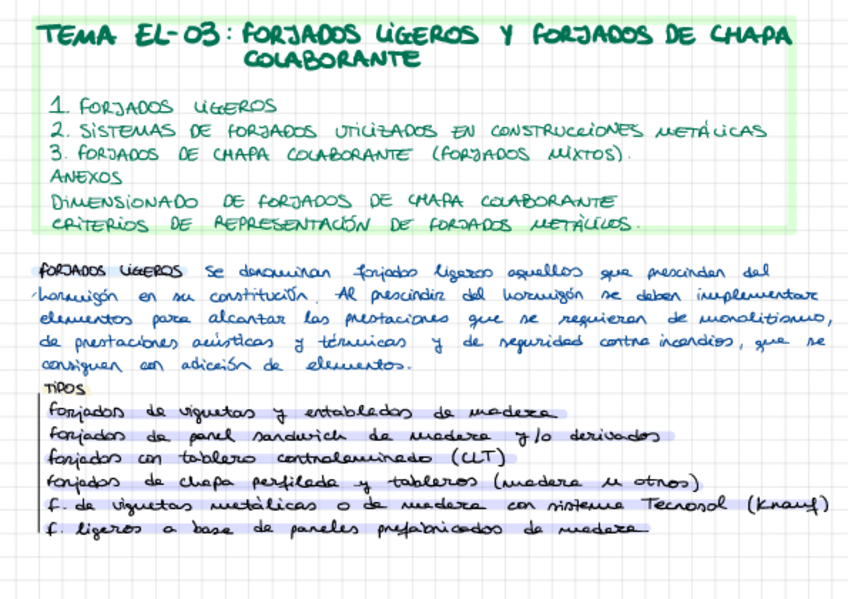 TEMA EL-03: FORJADOS LIGEROS Y FORJADOS DE CHAPA
COLABORANTE
1. FORJADOS LIGEROS
2. SISTEMAS DE FORJADOS UTILIZADOS EN CONSTRUCCIONES METÁLICAS
3. FORJADOS DE CHAPA COLABORANTE (FORJADOS MIXTOS).
ANEXOS
DIMENSIONADO DE FORJADOS DE CHAPA COLABORANTE
CRITERIOS DE REPRESENTACIÓN DE FORJADOS METÁLICOS.
FORJADOS LIGEROS Se denominan forjados ligeros aquellos que prescinden del
hormigón en su constitución. Al prescindir del hormigón se deben implementar
elementos para alcanzar las prestaciones que se requieran de monolitismo,
de prestaciones acústicas y térmicas y de seguridad contra incendios, que se
consiguen con adición de elementos.
TIPOS
forjados de viguetas y entablados de madera
forjados de panel sandwich de madera y/o derivados
forjados con tablero contralaminado (CLT)
forjados de chapa perfilada y tableros (madera u otros)
f. de viguetas metálicas o de madera con sistema Tecnosol (Knauf)
f. ligeros a base de paneles prefabricados de madera